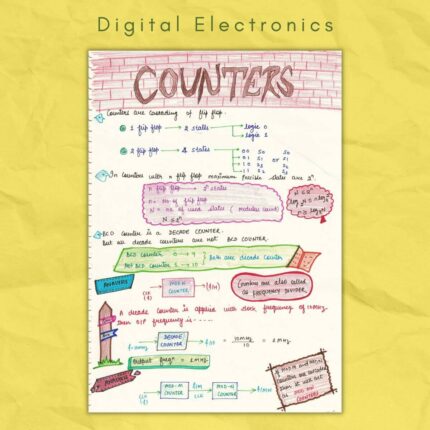 Digital Electronics
COUNTERS
Counters are cascading of flip flop.
1 flip flop → 2 states → logic 0
logic 1
2 flip flop → 4 states → 00 S0
01 S1 or S1
10 S2
11 S3
In Counters with n flip flop maximum possible states are 2ⁿ.
n flip flop → 2ⁿ states
n = no of flip flop
N = no of used states (modulus count)
N ≤ 2ⁿ
N ≤ 2ⁿ
BCD Counter is a DECADE COUNTER.
But all decade counters are not BCD COUNTER.
BCD COUNTER 0 → 9
Not BCD COUNTER 1 → 10
Both are decade counter
ANALYSIS
CLK
(f)
MOD-N
COUNTER
(f/N)
Counters are also called
as frequency DIVIDER
A decade Counter is applied with clock frequency of
then O/P frequency is
DECADE
COUNTER
(f/10)
Output freqⁿ = 1MHz
CLK
(f)
MOD-M
COUNTER
f/M
CLK
MOD-N
COUNTER
f/MN
If MOD-M and MOD-N
Counters are cascaded
then it will act
as
COUNTERS